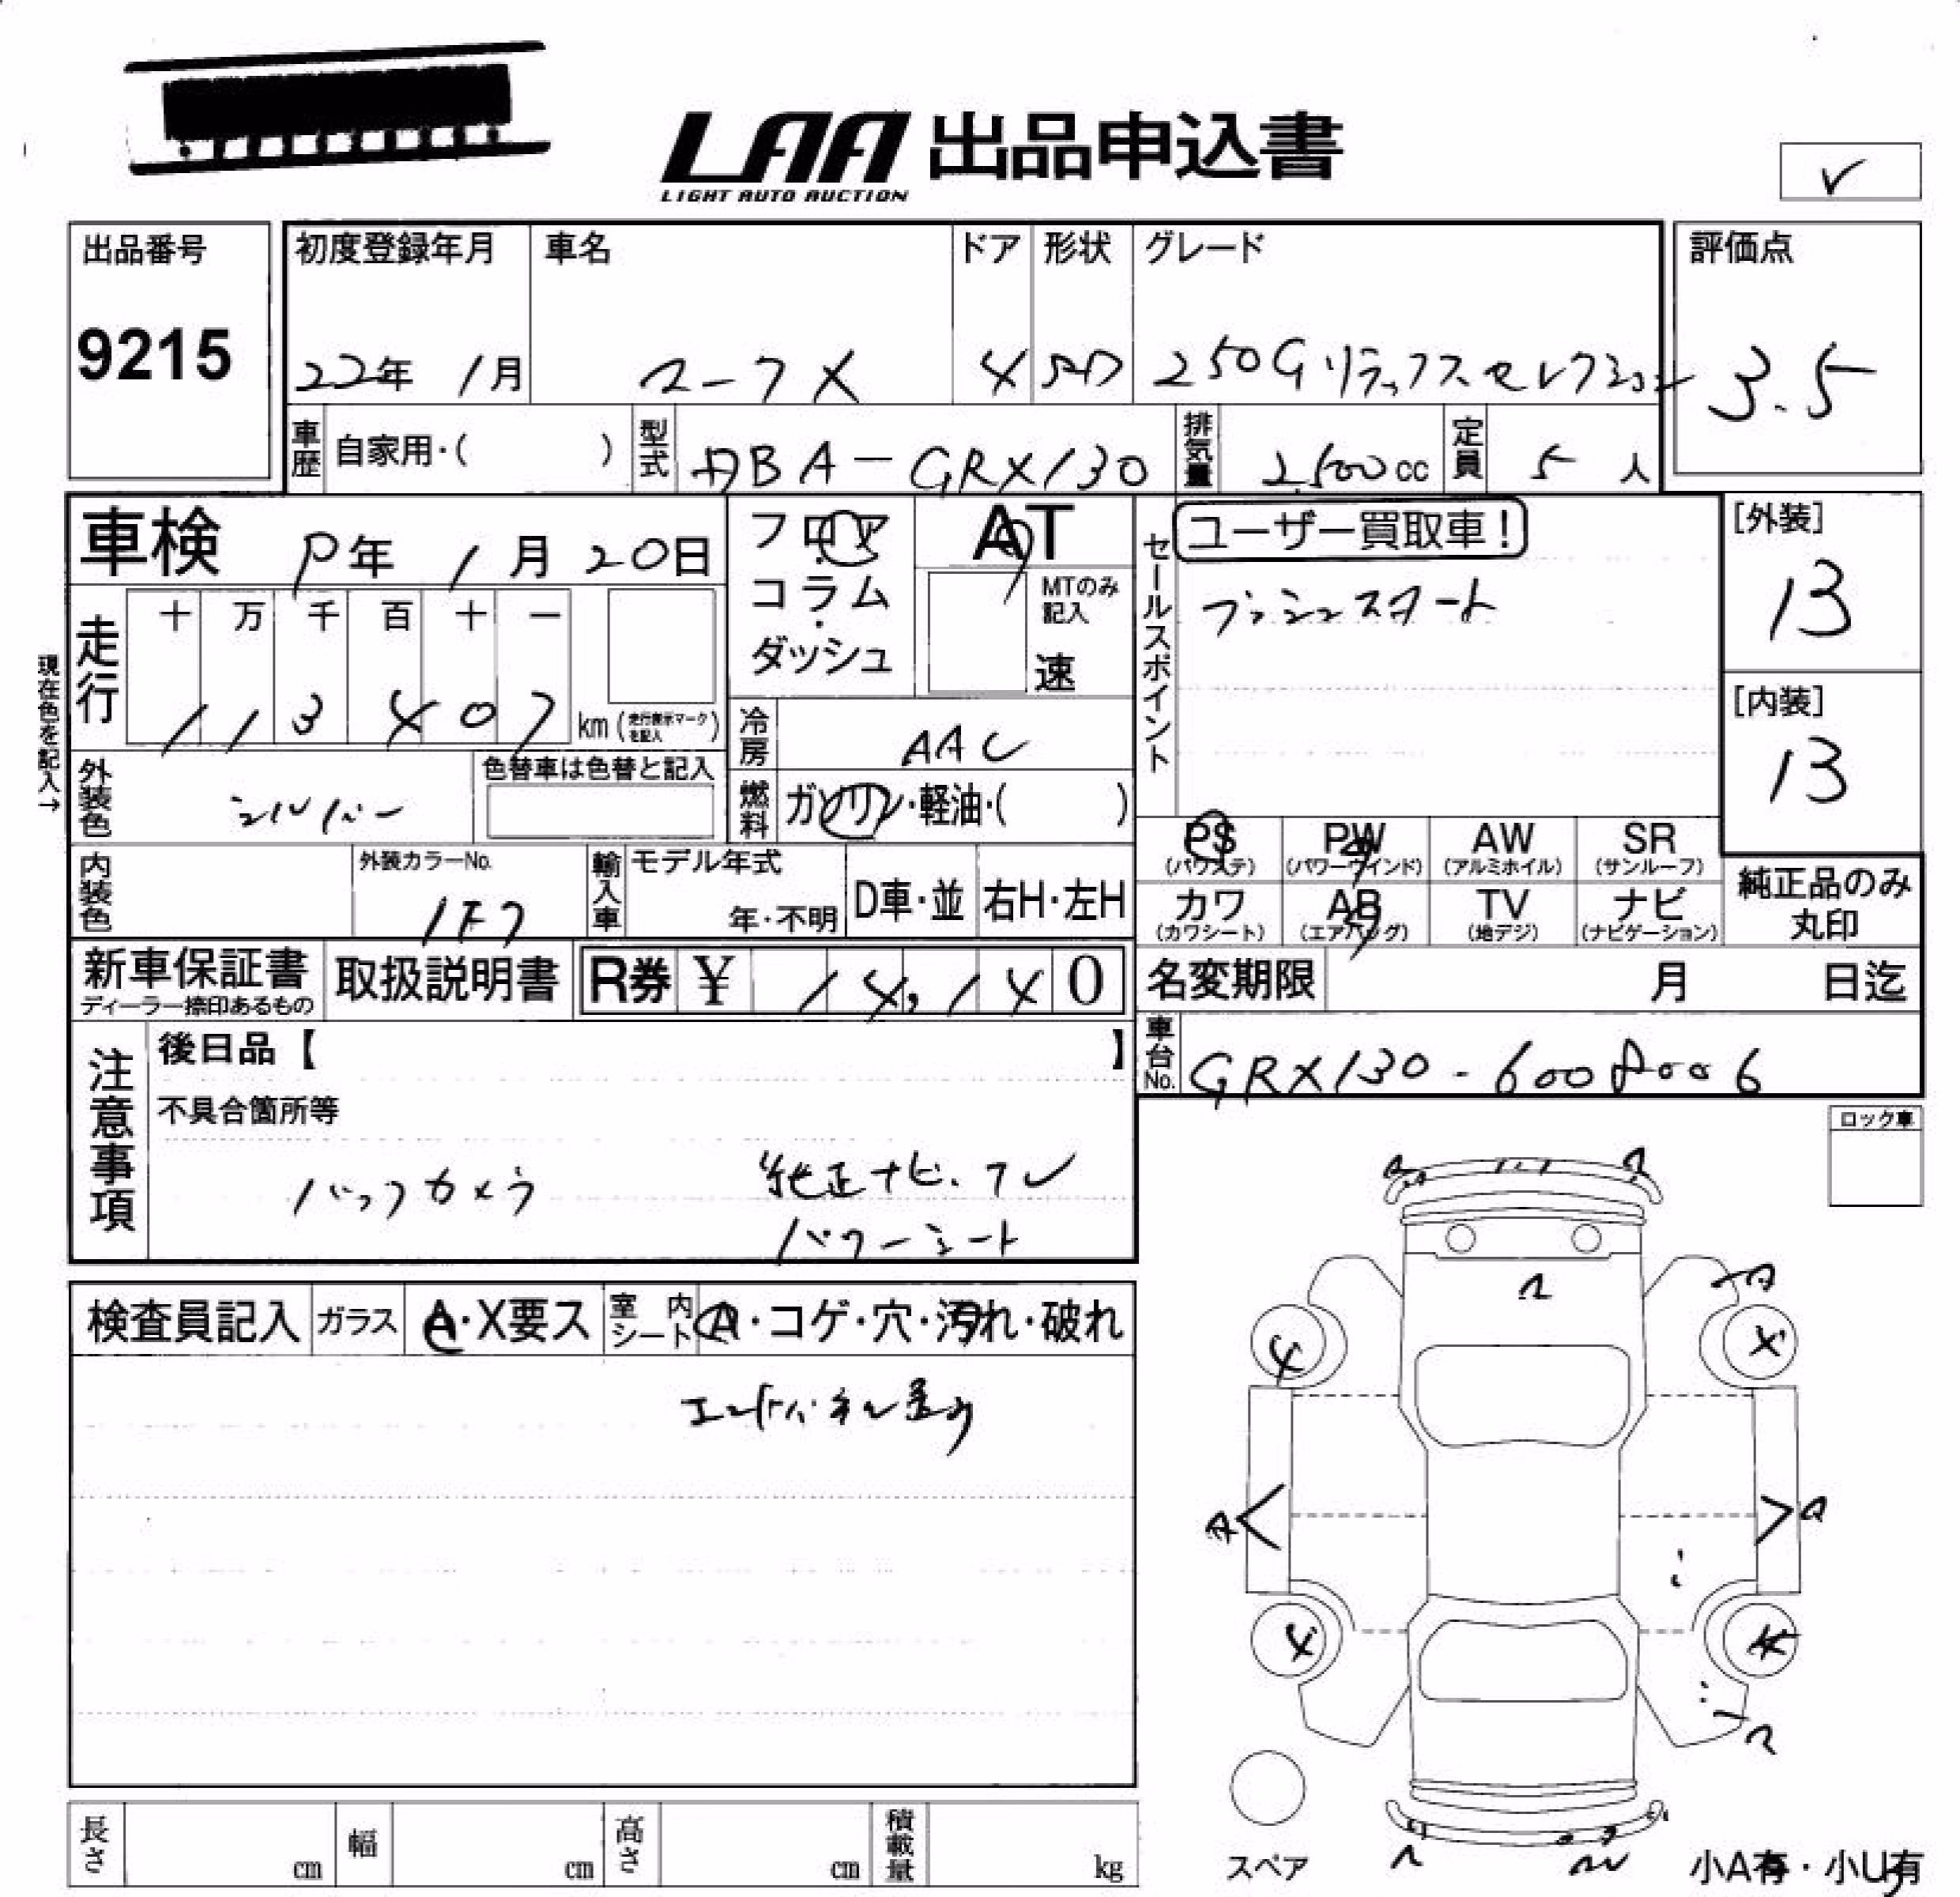 LAA 出品申込書
LIGHT AUTO AUCTION
出品番号
9215
初度登録年月
22年 1月
車名
マークX
ドア
4
形状
SD
グレード
250G リラックスセレクション
評価点
3.5
車歴 自家用・( )
型式 DBA-GRX130
排気量 2,500cc
定員 5人
車検 8年 1月 20日
フロア・コラム・ダッシュ
AT
MTのみ記入
速
セールスポイント
ユーザー買取車!
プッシュスタート
[外装]
13
[内装]
13
現在色を記入→
走行
十 万 千 百 十 一
1 1 3 4 0 7 km (走行表示マークを記入)
冷房 AAC
外装色 シルバー
色替車は色替と記入
燃料 ガソリン・軽油・( )
PS (パワステ)
PW (パワーウインド)
AW (アルミホイル)
SR (サンルーフ)
カワ (カワシート)
AB (エアバッグ)
TV (地デジ)
ナビ (ナビゲーション)
純正品のみ丸印
内装色
外装カラーNo.
1F7
輸入車 モデル年式
年・不明
D車・並
右H・左H
新車保証書
ディーラー捺印あるもの
取扱説明書
R券 ¥ 14,140
名変期限 月 日迄
車台No. GRX130-6008006
注意事項
後日品【 】
不具合箇所等
バックカメラ 純正ナビ、TV
パワーシート
ロック車
検査員記入
ガラス A・X要ス
室内シート A・コゲ・穴・汚れ・破れ
エンドパネル歪み
長さ cm
幅 cm
高さ cm
積載量 kg
スペア
小A有・小U有